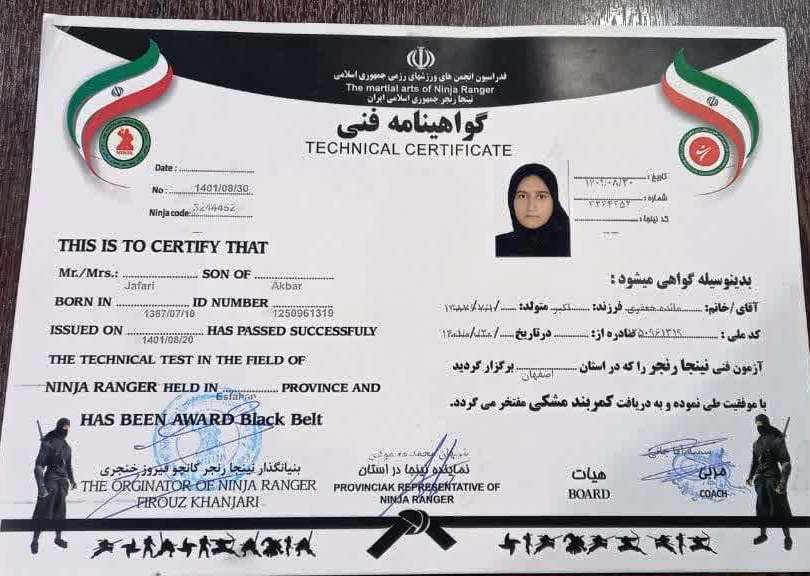 فدراسیون انجمن های ورزشهای رزمی جمهوری اسلامی
The martial arts of Ninja Ranger
نینجا رنجر جمهوری اسلامی ایران
گواهینامه فنی
TECHNICAL CERTIFICATE
Date :
No : 1401/08/30
Ninja code:
THIS IS TO CERTIFY THAT
Mr./Mrs.: Jafari SON OF Akbar
BORN IN 1387/07/10 ID NUMBER 1250961319
ISSUED ON 1401/08/20 HAS PASSED SUCCESSFULY
THE TECHNICAL TEST IN THE FIELD OF
NINJA RANGER HELD IN Esfahan PROVINCE AND
HAS BEEN AWARD Black Belt
تاریخ :
شماره :
کد نینجا :
بدینوسیله گواهی میشود :
آقای/خانم: مائده جعفری فرزند: اکبر متولد:
کد ملی : صادره از: درتاریخ
آزمون فنی نینجا رنجر را که در استان اصفهان برگزار گردید
با موفقیت طی نموده و به دریافت کمربند مشکی مفتخر می گردد.
بنیانگذار نینجا رنجر کانچو فیروز خنجری
THE ORGINATOR OF NINJA RANGER
FIROUZ KHANJARI
نماینده نینجا در استان
PROVINCIAK REPRESENTATIVE OF
NINJA RANGER
هیات
BOARD
مربی
COACH